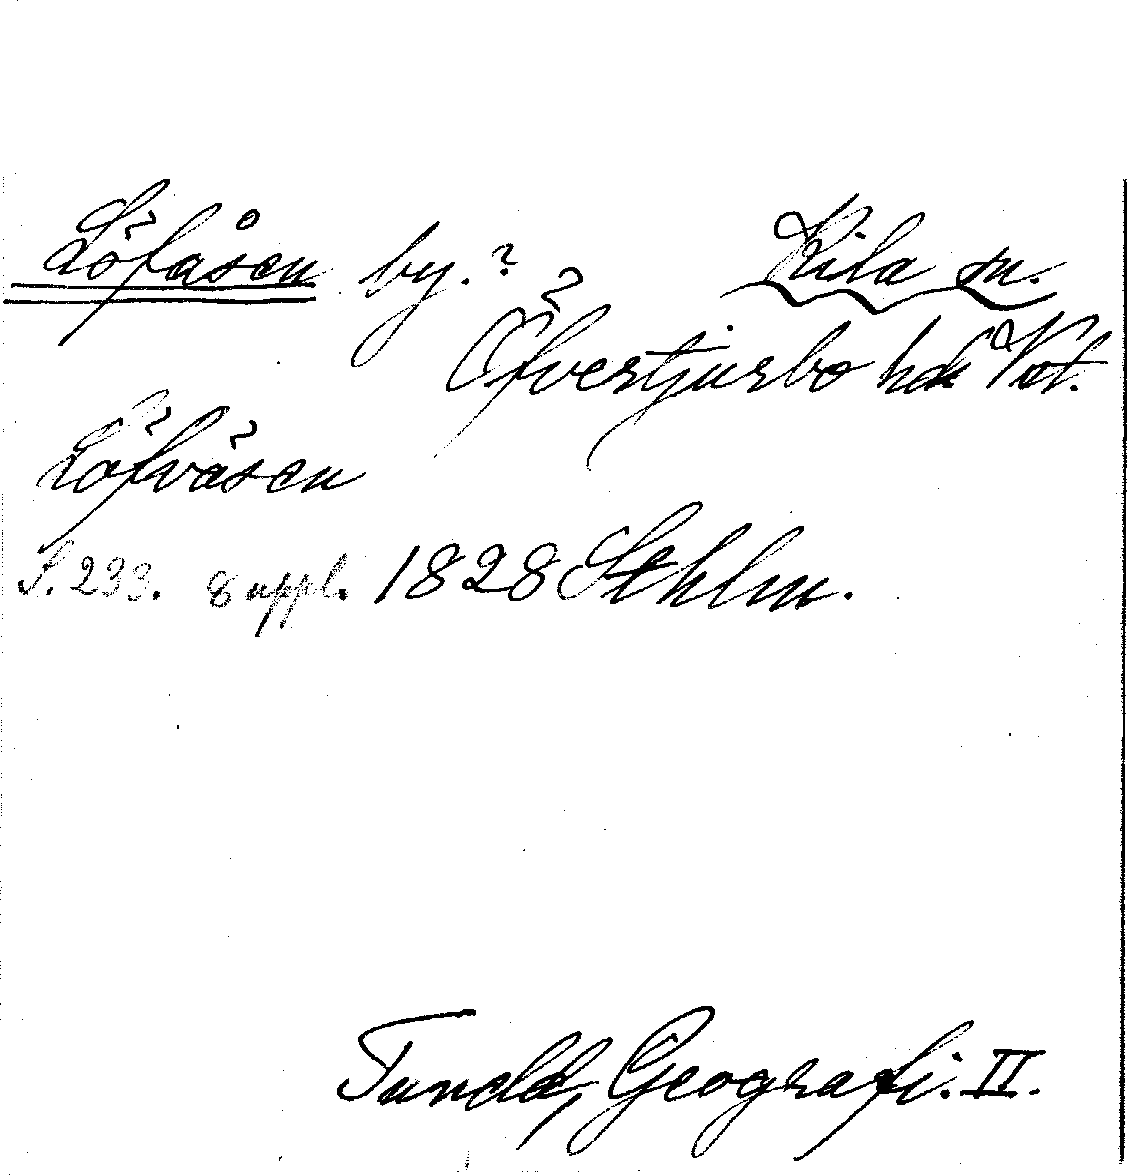 Löfåsen by.? Kila sn.
Öfvertjurbo hd Vstl.
Löfväsen
S. 233. 8 uppl. 1828 Sthlm.
Tuneld, Geografi. II.